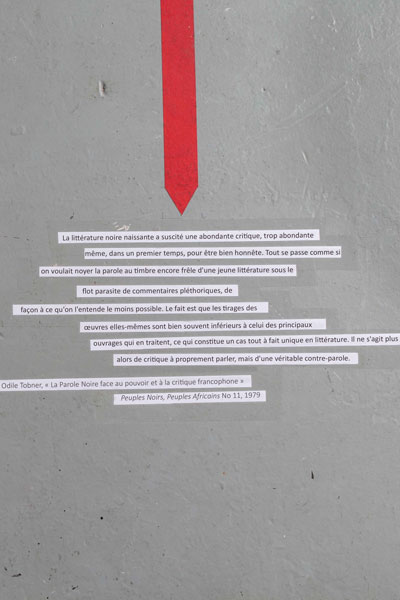 La littérature noire naissante a suscité une abondante critique, trop abondante
même, dans un premier temps, pour être bien honnête. Tout se passe comme si
on voulait noyer la parole au timbre encore frêle d'une jeune littérature sous le
flot parasite de commentaires pléthoriques, de
façon à ce qu'on l'entende le moins possible. Le fait est que les tirages des
œuvres elles-mêmes sont bien souvent inférieurs à celui des principaux
ouvrages qui en traitent, ce qui constitue un cas tout à fait unique en littérature. Il ne s'agit plus
alors de critique à proprement parler, mais d'une véritable contre-parole.
Odile Tobner, « La Parole Noire face au pouvoir et à la critique francophone »
Peuples Noirs, Peuples Africains No 11, 1979